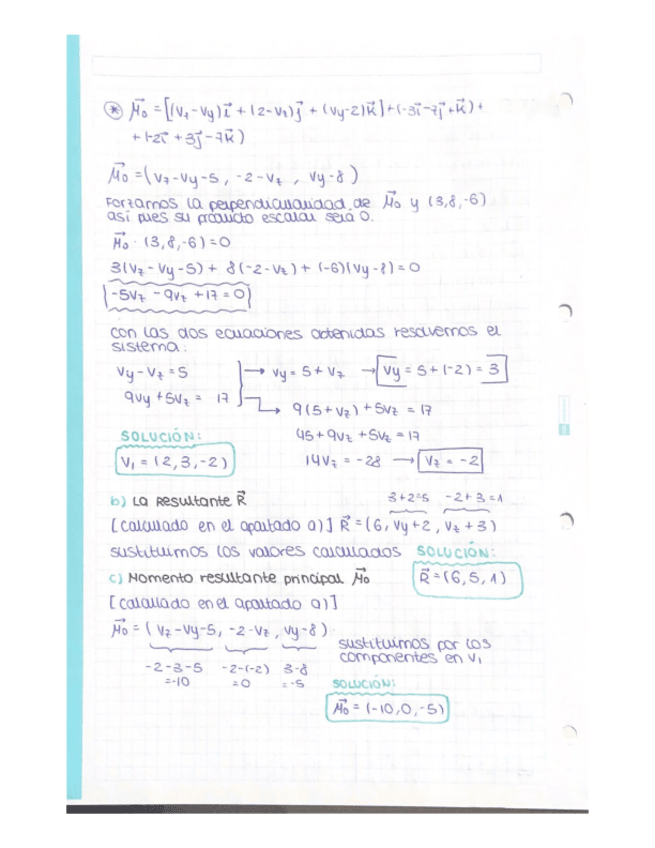 * M⃗o = [(Vz-Vy)i⃗ + (2-Vz)j⃗ + (Vy-2)k⃗] + (-3i⃗-7j⃗+k⃗) +
+ (-2i⃗ + 3j⃗ - 7k⃗)
M⃗o = (Vz-Vy-5, -2-Vz, Vy-8)
Forzamos la perpendicularidad de M⃗o y (3,8,-6)
así pues su producto escalar será 0.
M⃗o · (3,8,-6) = 0
3(Vz-Vy-5) + 8(-2-Vz) + (-6)(Vy-8) = 0
-5Vz - 9Vz + 17 = 0
con las dos ecuaciones obtenidas resolvemos el
sistema:
Vy-Vz = 5 → Vy = 5+Vz → Vy = 5+(-2) = 3
9Vy + 5Vz = 17 → 9(5+Vz) + 5Vz = 17
SOLUCIÓN: 45+9Vz+5Vz = 17
V₁ = (2,3,-2) 14Vz = -28 → Vz = -2
3+2=5 -2+3=1
b) La Resultante R⃗
[calculado en el apartado a)] R⃗ = (6, Vy+2, Vz+3)
sustituimos los valores calculados SOLUCIÓN:
c) Momento resultante principal M⃗o R⃗ = (6,5,1)
[calculado en el apartado a)]
M⃗o = (Vz-Vy-5, -2-Vz, Vy-8)
sustituimos por los
componentes en V₁
-2-3-5 -2-(-2) 3-8
=-10 =0 =-5 SOLUCIÓN:
M⃗o = (-10,0,-5)